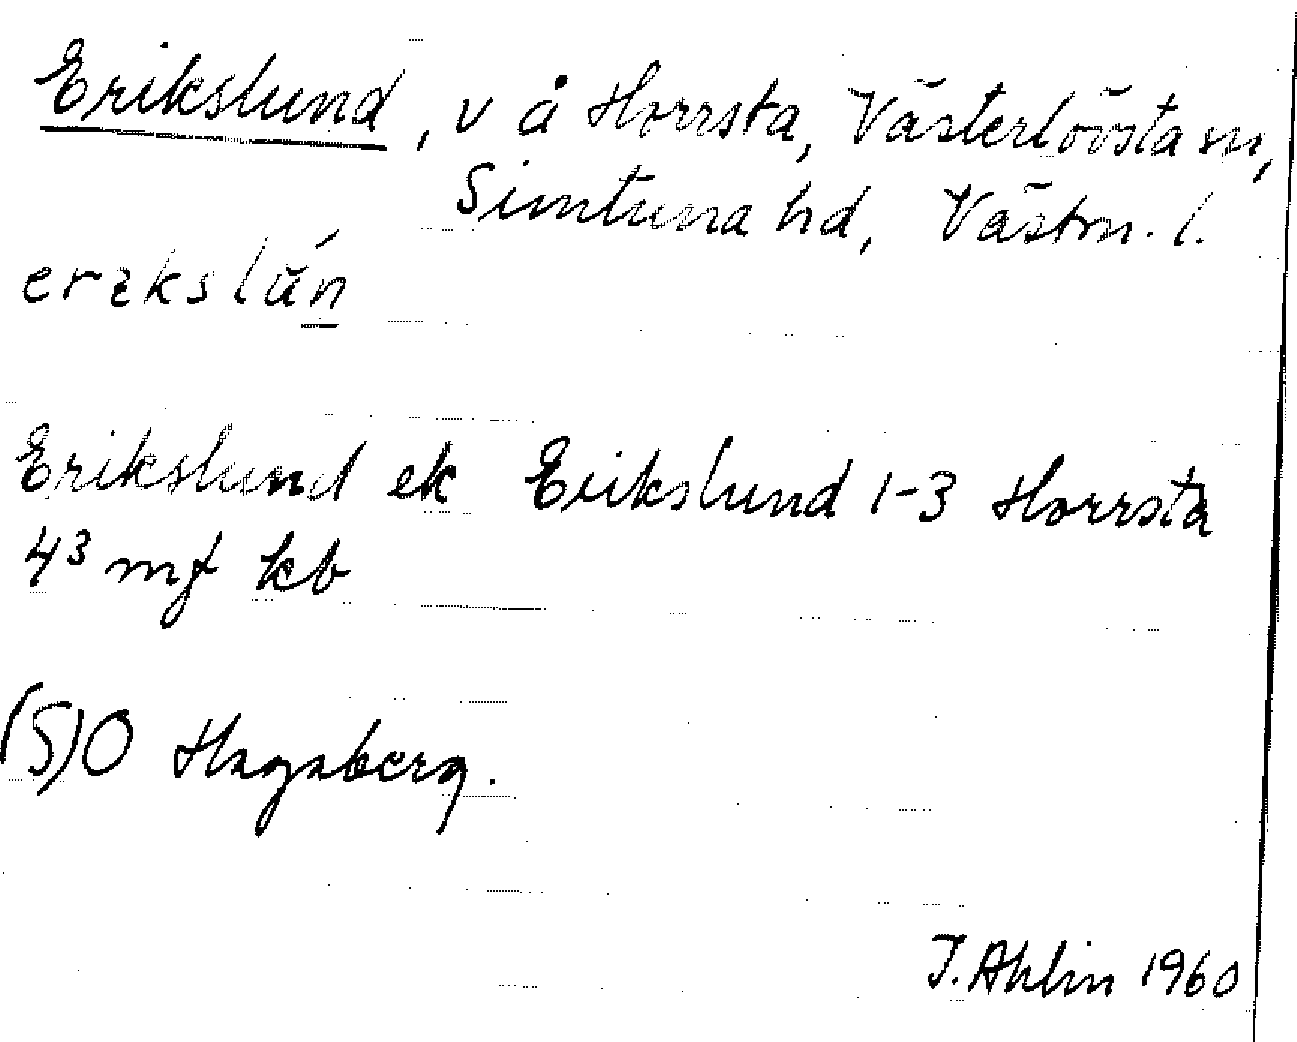 Erikslund, v å Horrsta, Västerlövsta sn,
Simtuna hd, Västm. l.
erikslún
Erikslund ek Erikslund 1-3 Horrsta
4³ mf kb
(S)O Hagaberg.
J. Ahlin 1960